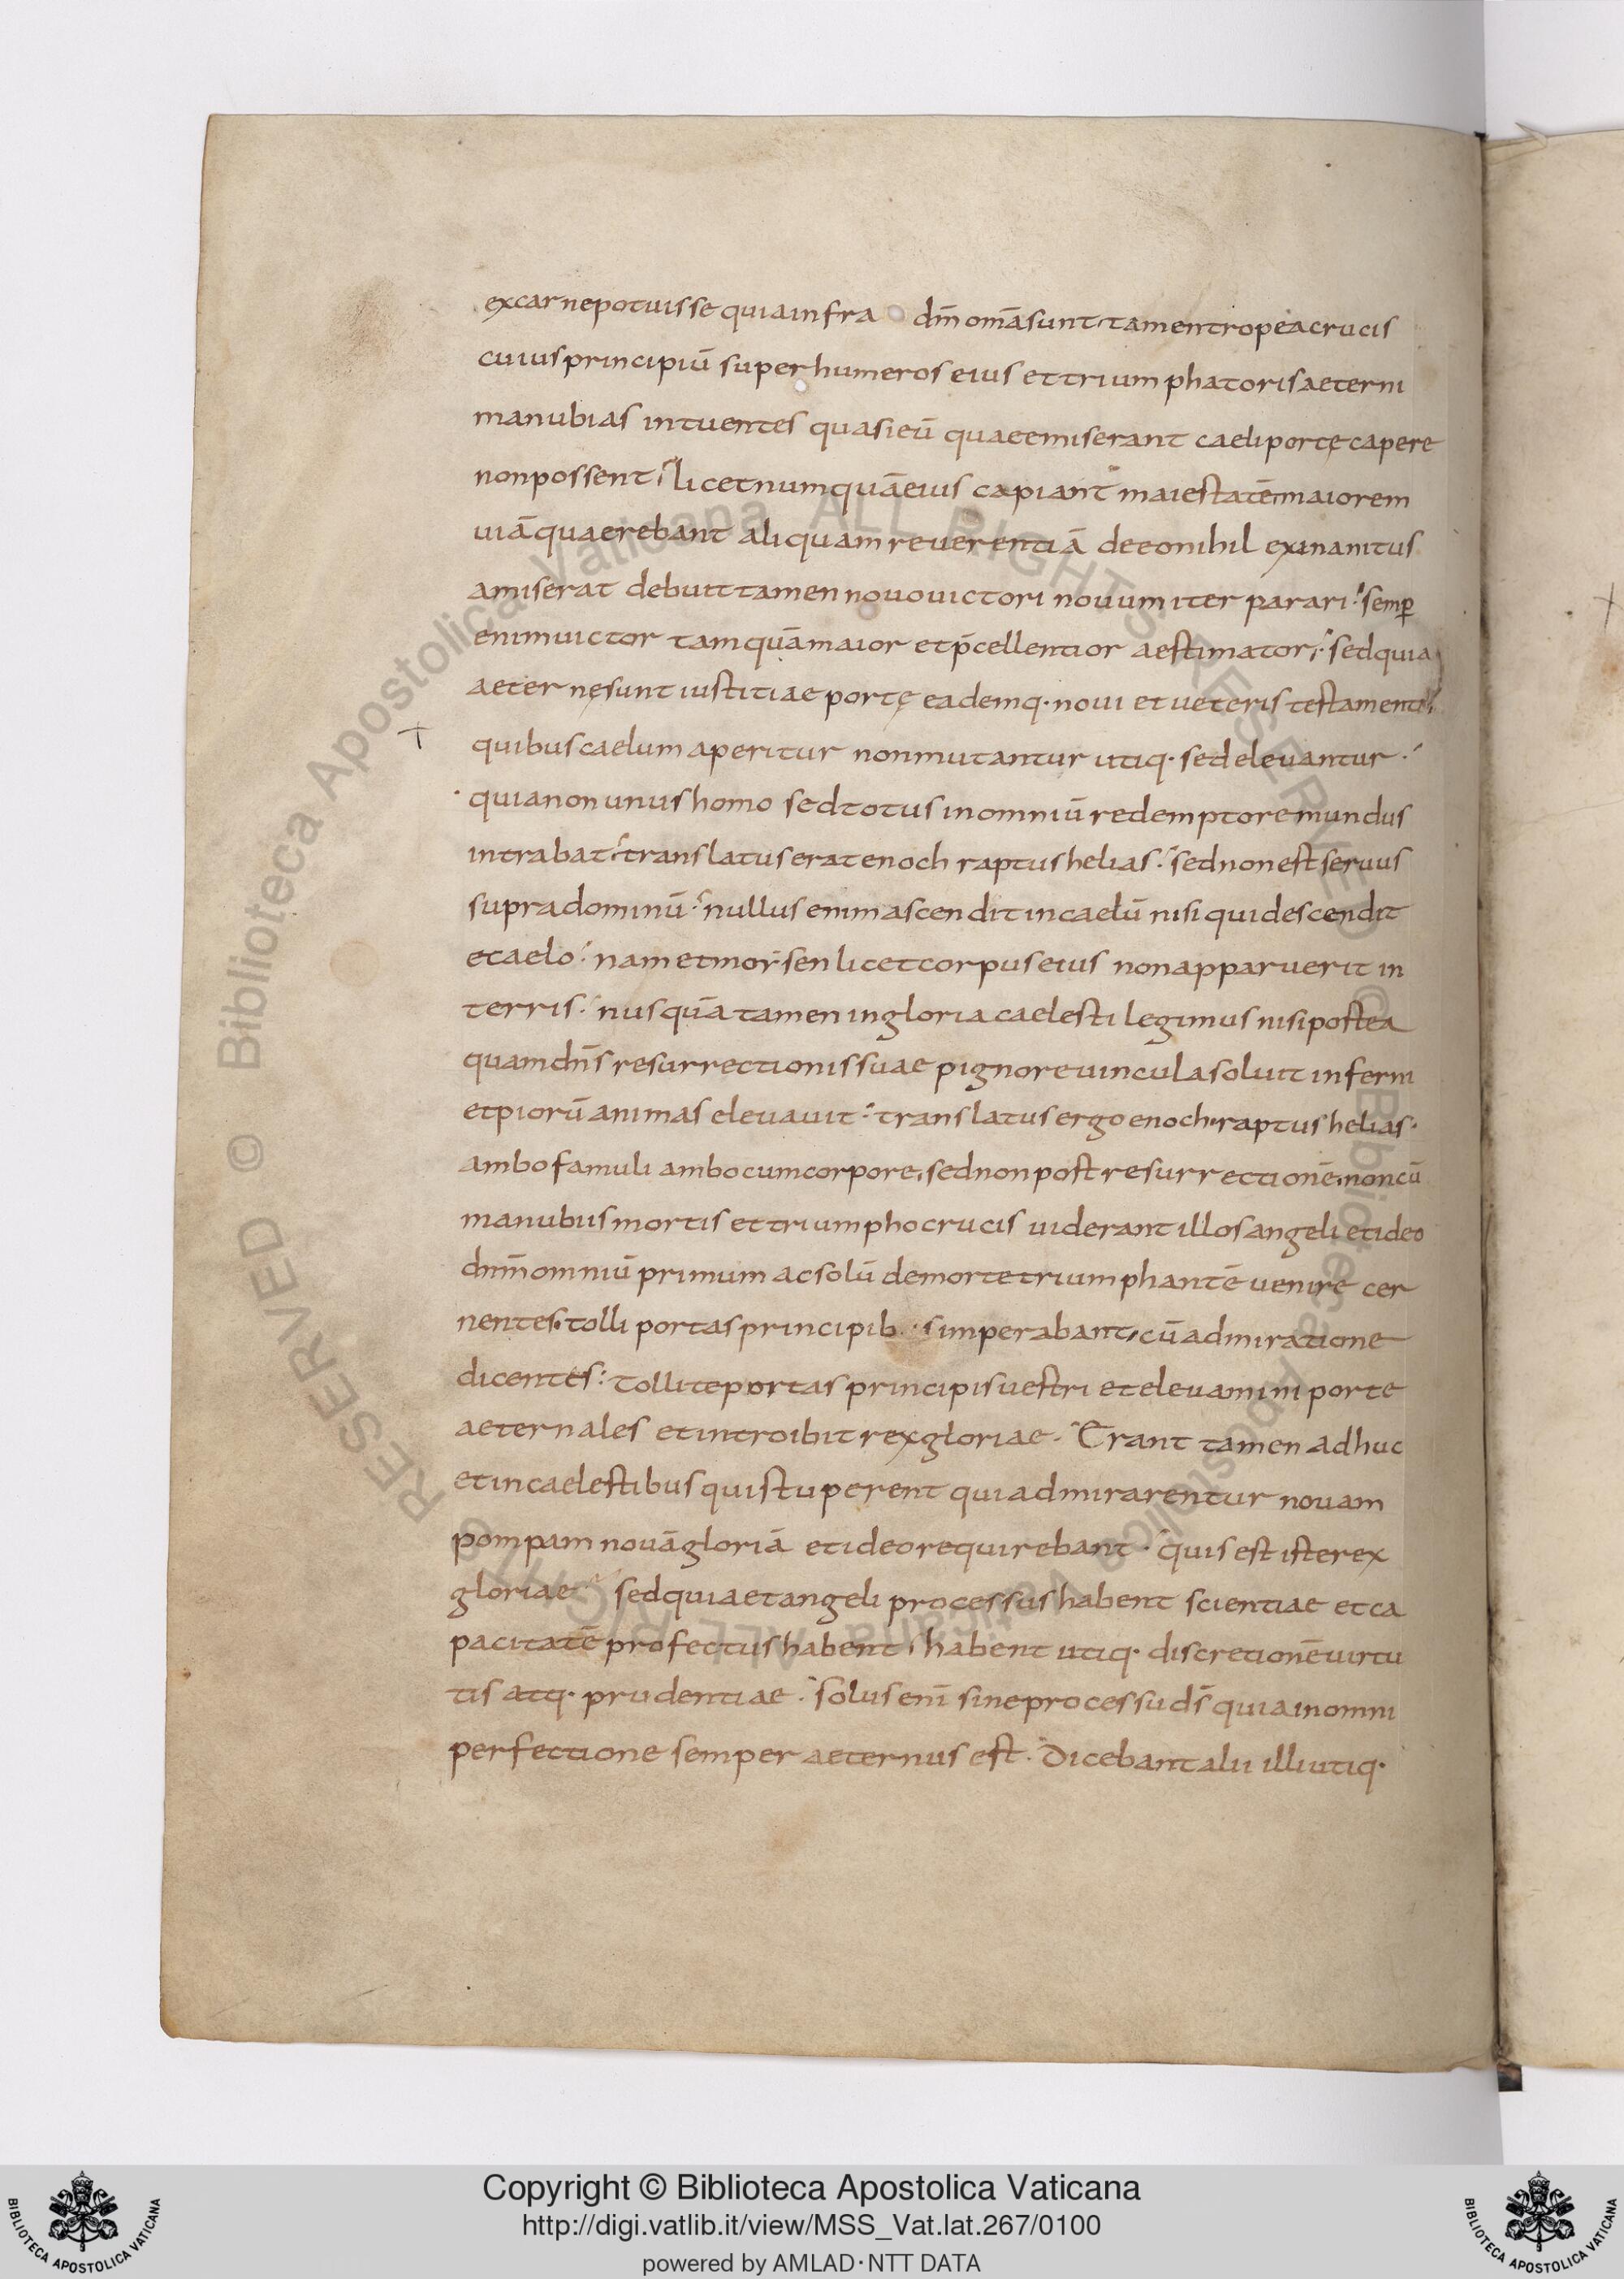 ex carne potuisse quia infra dm̄ omā sunt tamen tropea crucis
cuius principiū super humeros eius et triumphatoris aeterni
manubias intuentes quasi eū quae emiserant caeli portę capere
non possent; licet numquā eius capiant maiestatē maiorem
uiā quaerebant aliquam reuerentiā de eo nihil exinanitus
amiserat debuit tamen nouo uictori nouum iter parari; semp̄
enim uictor tamquā maior et p̄cellentior aestimator; sed quia
aeternę sunt iustitiae portę eademq· noui et ueteris testamenti
quibus caelum aperitur non mutantur utiq· sed eleuantur·
quia non unus homo sed totus in omniū redemptore mundus
intrabat; translatus erat enoch raptus helias; sed non est seruus
supra dominū; nullus enim ascendit in caelū nisi qui descendit
e caelo; nam et moysen licet corpus eius non apparuerit in
terris; nusquā tamen in gloria caelesti legimus nisi postea
quam dn̄s resurrectionis suae pignore uincula soluit inferni
et piorū animas eleuauit; translatus ergo enoch raptus helias·
ambo famuli ambo cum corpore, sed non post resurrectionē, non cū
manubiis mortis et triumpho crucis uiderant illos angeli et ideo
dnm̄ omniū primum ac solū de morte triumphantē uenire cer
nentes, tolli portas principib· s imperabant, cū admiratione
dicentes: Tollite portas principis uestri et eleuamini porte
aeternales et introibit rex gloriae. Erant tamen adhuc
et in caelestibus qui stuperent qui admirarentur nouam
pompam nouā gloriā et ideo requirebant· quis est iste rex
gloriae sed quia et angeli processus habent scientiae et ca
pacitatē profectus habent, habent utiq· discretionē uirtu
tis atq· prudentiae. solus enī sine processu ds̄ quia in omni
perfectione semper aeternus est. Dicebant alii illi utiq·
RESERVED © Biblioteca Apostolica Vaticana ALL RIGHTS RESERVED © Biblioteca Apostolica Vaticana ALL RIGHTS
Copyright © Biblioteca Apostolica Vaticana
http://digi.vatlib.it/view/MSS_Vat.lat.267/0100
powered by AMLAD·NTT DATA
BIBLIOTECA APOSTOLICA VATICANA
BIBLIOTECA APOSTOLICA VATICANA